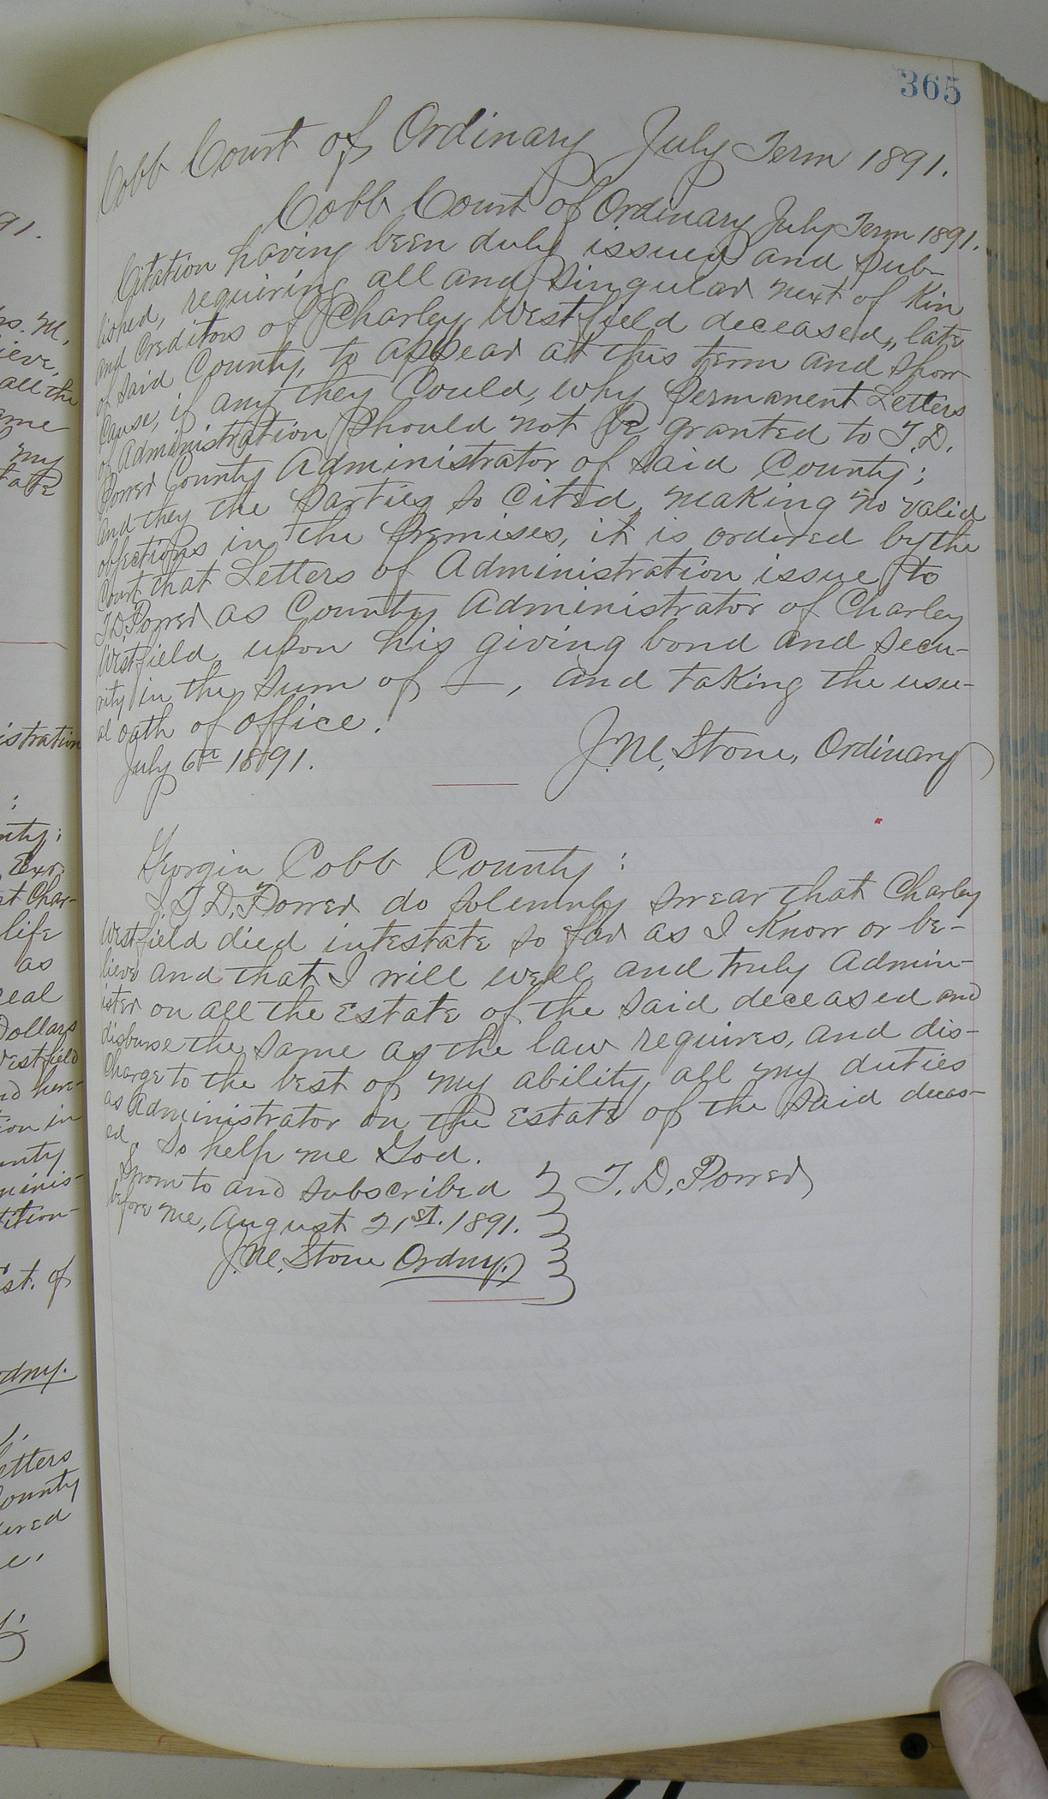 365
Cobb Court of Ordinary July Term 1891.
Cobb Court of Ordinary July Term 1891.
Citation having been duly issued and Pub-
lished, requiring all and Singular next of Kin
and Creditors of Charley Westfield deceased, late
of Said County, to appear at this term and Show
Cause, if any they Could, why Permanent Letters
of Administration Should not be granted to T. D.
Power County Administrator of Said County;
and they the Parties so Cited, making no valid
objections in the Premises, it is ordered by the
Court that Letters of Administration issue to
T. D. Power as County Administrator of Charley
Westfield, upon his giving bond and Secu-
rity in the Sum of —, and taking the usu-
al oath of office.
July 6th 1891.
J. M. Stone, Ordinary
Georgia Cobb County:
I, T. D. Power do Solemnly Swear that Charley
Westfield died intestate so far as I Know or be-
lieve and that I will well and truly Admin-
ister on all the Estate of the Said deceased and
disburse the same as the law requires, and dis-
Charge to the best of my ability, all my duties
as Administrator on the Estate of the Said deceas-
ed. So help me God.
Sworn to and Subscribed
T. D. Power
before me, August 21st. 1891.
J. M. Stone Ordny.
91.
all the
ame
my
istration
nty;
Exr.
t Char-
life
as
eal
Dollars
estfield
nd here-
ion in
unty
minis-
tition-
st. of
dny.
etters
County
ered